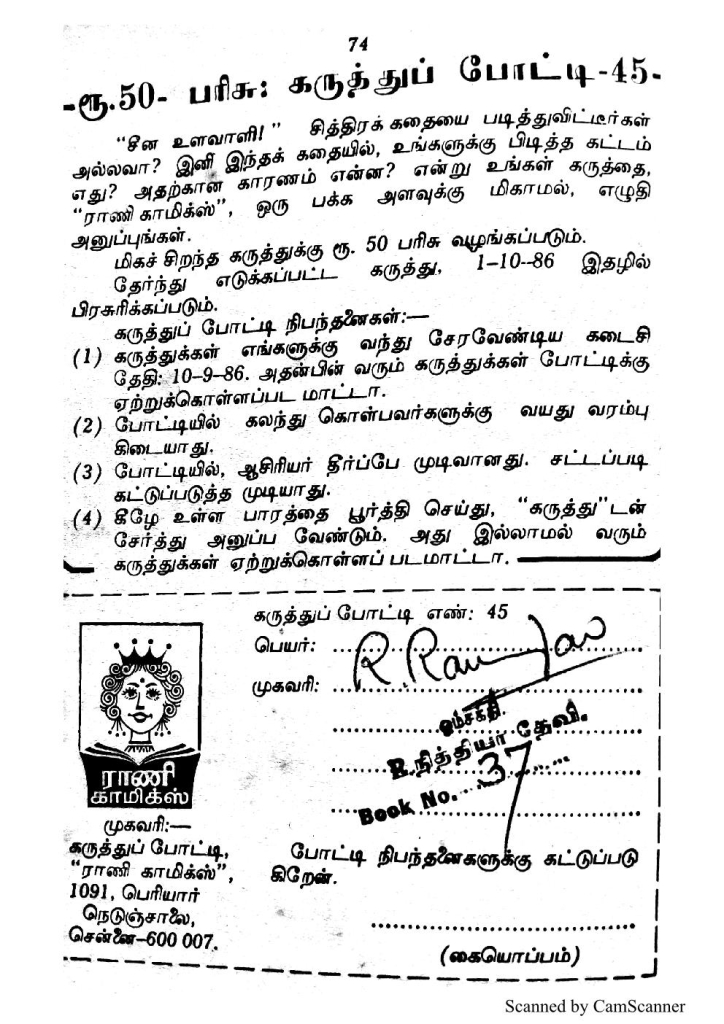 74
-ரூ.50- பரிசு: கருத்துப் போட்டி-45-
"சீன உளவாளி!" சித்திரக் கதையை படித்துவிட்டீர்கள்
அல்லவா? இனி இந்தக் கதையில், உங்களுக்கு பிடித்த கட்டம்
எது? அதற்கான காரணம் என்ன? என்று உங்கள் கருத்தை,
"ராணி காமிக்ஸ்", ஒரு பக்க அளவுக்கு மிகாமல், எழுதி
அனுப்புங்கள்.
மிகச் சிறந்த கருத்துக்கு ரூ. 50 பரிசு வழங்கப்படும்.
தேர்ந்து எடுக்கப்பட்ட கருத்து, 1-10--86 இதழில்
பிரசுரிக்கப்படும்.
கருத்துப் போட்டி நிபந்தனைகள்:—
(1) கருத்துக்கள் எங்களுக்கு வந்து சேரவேண்டிய கடைசி
தேதி: 10-9-86. அதன்பின் வரும் கருத்துக்கள் போட்டிக்கு
ஏற்றுக்கொள்ளப்பட மாட்டா.
(2) போட்டியில் கலந்து கொள்பவர்களுக்கு வயது வரம்பு
கிடையாது.
(3) போட்டியில், ஆசிரியர் தீர்ப்பே முடிவானது. சட்டப்படி
கட்டுப்படுத்த முடியாது.
(4) கீழே உள்ள பாரத்தை பூர்த்தி செய்து, "கருத்து"டன்
சேர்த்து அனுப்ப வேண்டும். அது இல்லாமல் வரும்
கருத்துக்கள் ஏற்றுக்கொள்ளப் படமாட்டா.
கருத்துப் போட்டி எண்: 45
பெயர்:
முகவரி:
ஓம்சக்தி.
R.நித்தியா தேவி.
Book No. 37
ராணி
காமிக்ஸ்
முகவரி:—
கருத்துப் போட்டி,
"ராணி காமிக்ஸ்",
1091, பெரியார்
நெடுஞ்சாலை,
சென்னை-600 007.
போட்டி நிபந்தனைகளுக்கு கட்டுப்படு
கிறேன்.
(கையொப்பம்)
Scanned by CamScanner